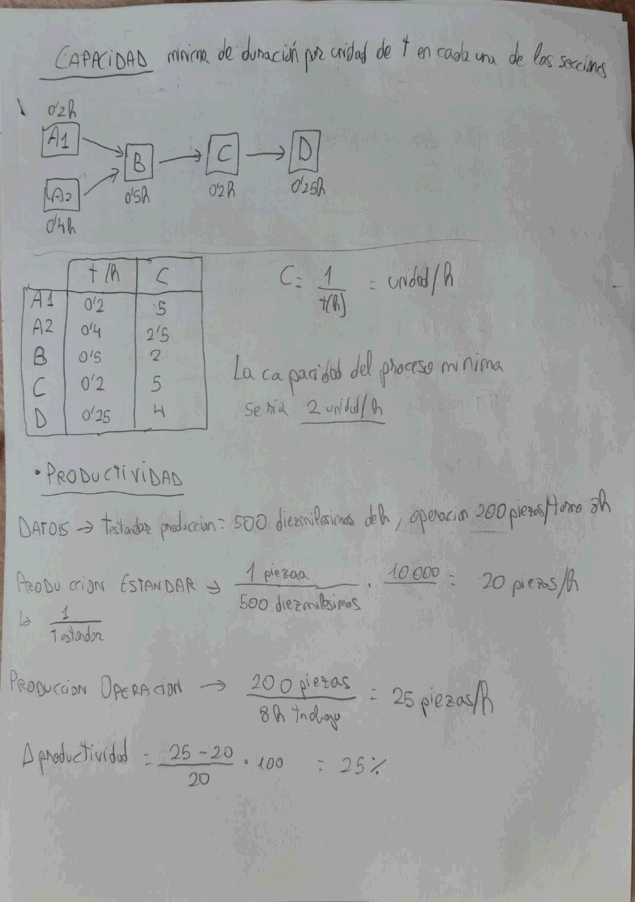 CAPACIDAD minima de duración por unidad de t en cada una de las secciones
0'2h
A1
B
C
D
A2
0'5h
0'2h
0'25h
0'4h
t/h C
A1 0'2 5
A2 0'4 2'5
B 0'5 2
C 0'2 5
D 0'25 4
C = 1/t(h) = unidad/h
La capacidad del proceso minima
seria 2 unidad/h
• PRODUCTIVIDAD
DATOS → testandar produccion = 500 diezmilesimas de h, operacion 200 piezas/turno 8h
PRODUCCION ESTANDAR → 1 piezaa / 500 diezmilesimas · 10000 = 20 piezas/h
↳ 1 / Testandar
PRODUCCION OPERACION → 200 piezas / 8h trabajo = 25 piezas/h
Δ productividad = 25 - 20 / 20 · 100 = 25%